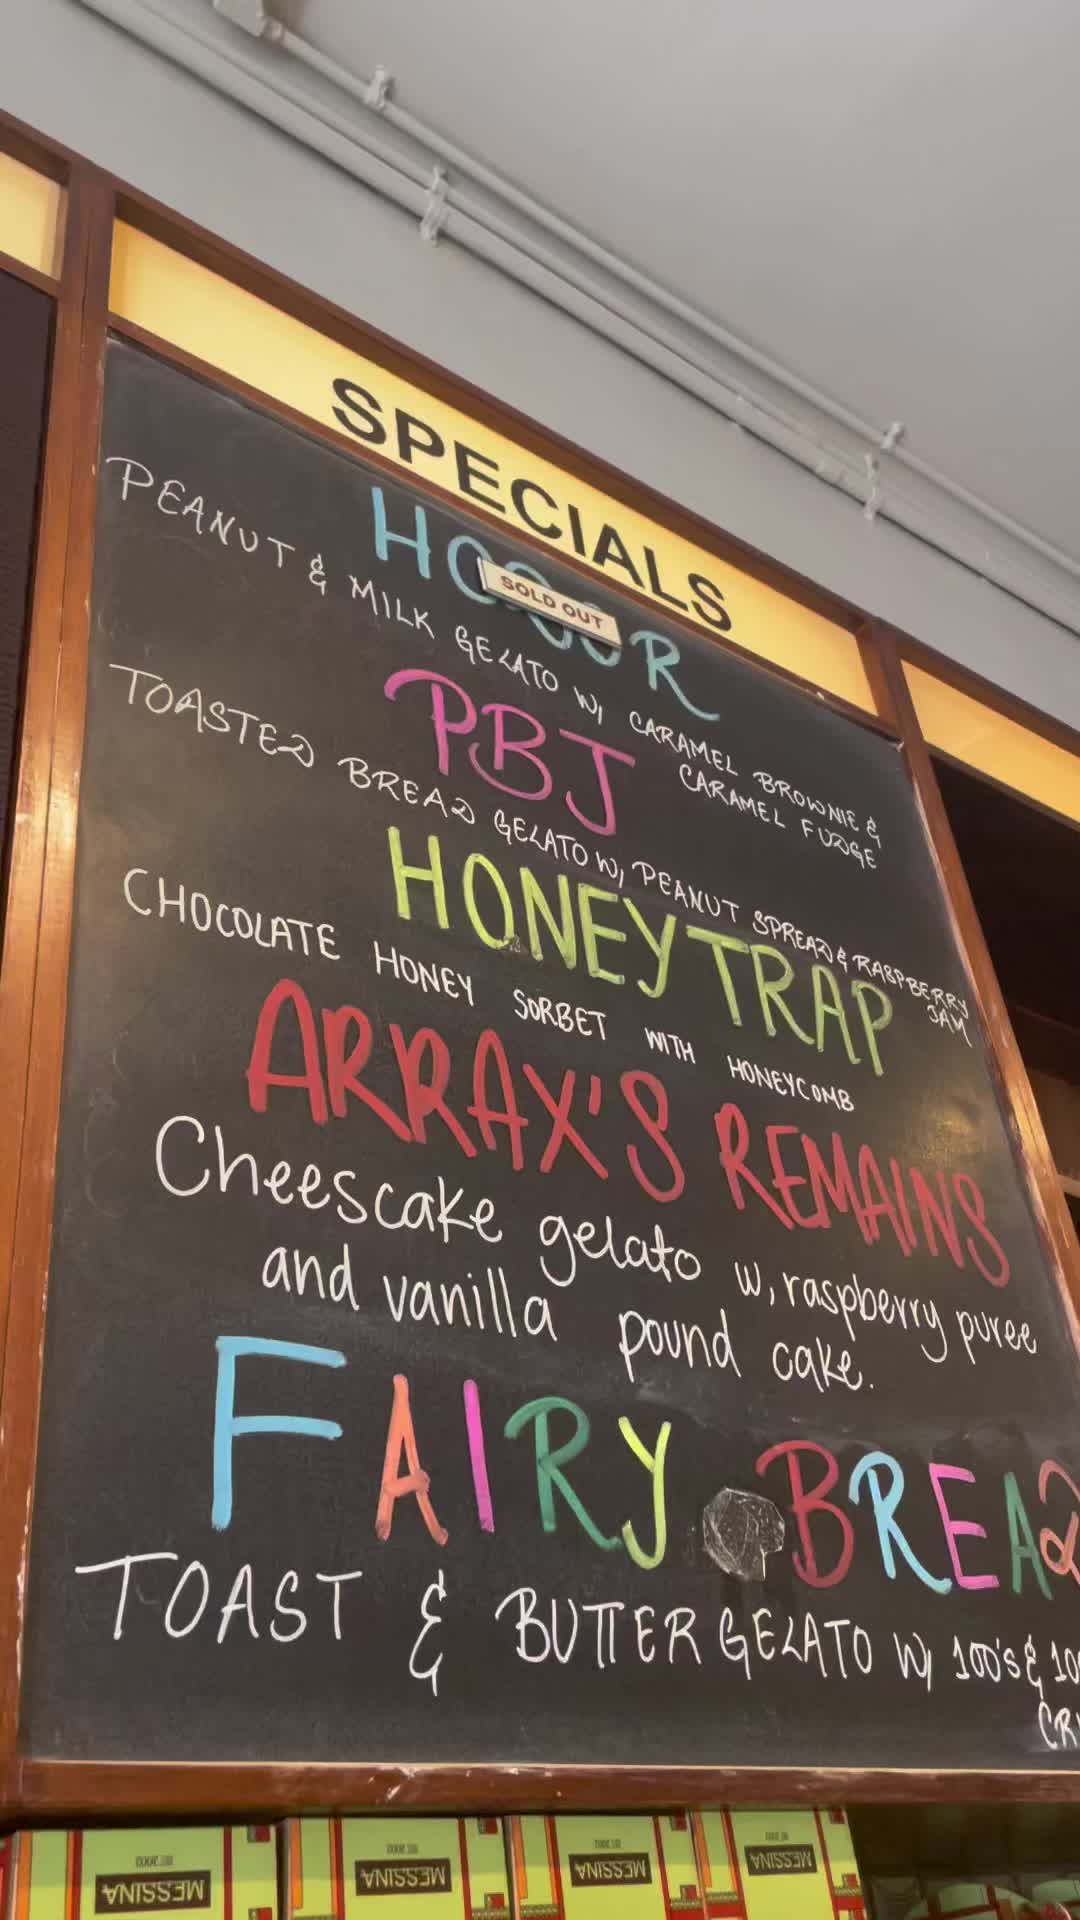 SPECIALS
SOLD OUT
PEANUT & MILK GELATO W/ CARAMEL BROWNIE &
CARAMEL FUDGE
PBJ
TOASTED BREAD GELATO W/ PEANUT SPREAD & RASPBERRY
JAM
HONEY TRAP
CHOCOLATE HONEY SORBET WITH HONEYCOMB
ARRAX'S REMAINS
Cheescake gelato w, raspberry puree
and vanilla pound cake.
FAIRY BREAD
TOAST & BUTTER GELATO W/ 100's &
MESSINA
MESSINA
MESSINA
MESSINA